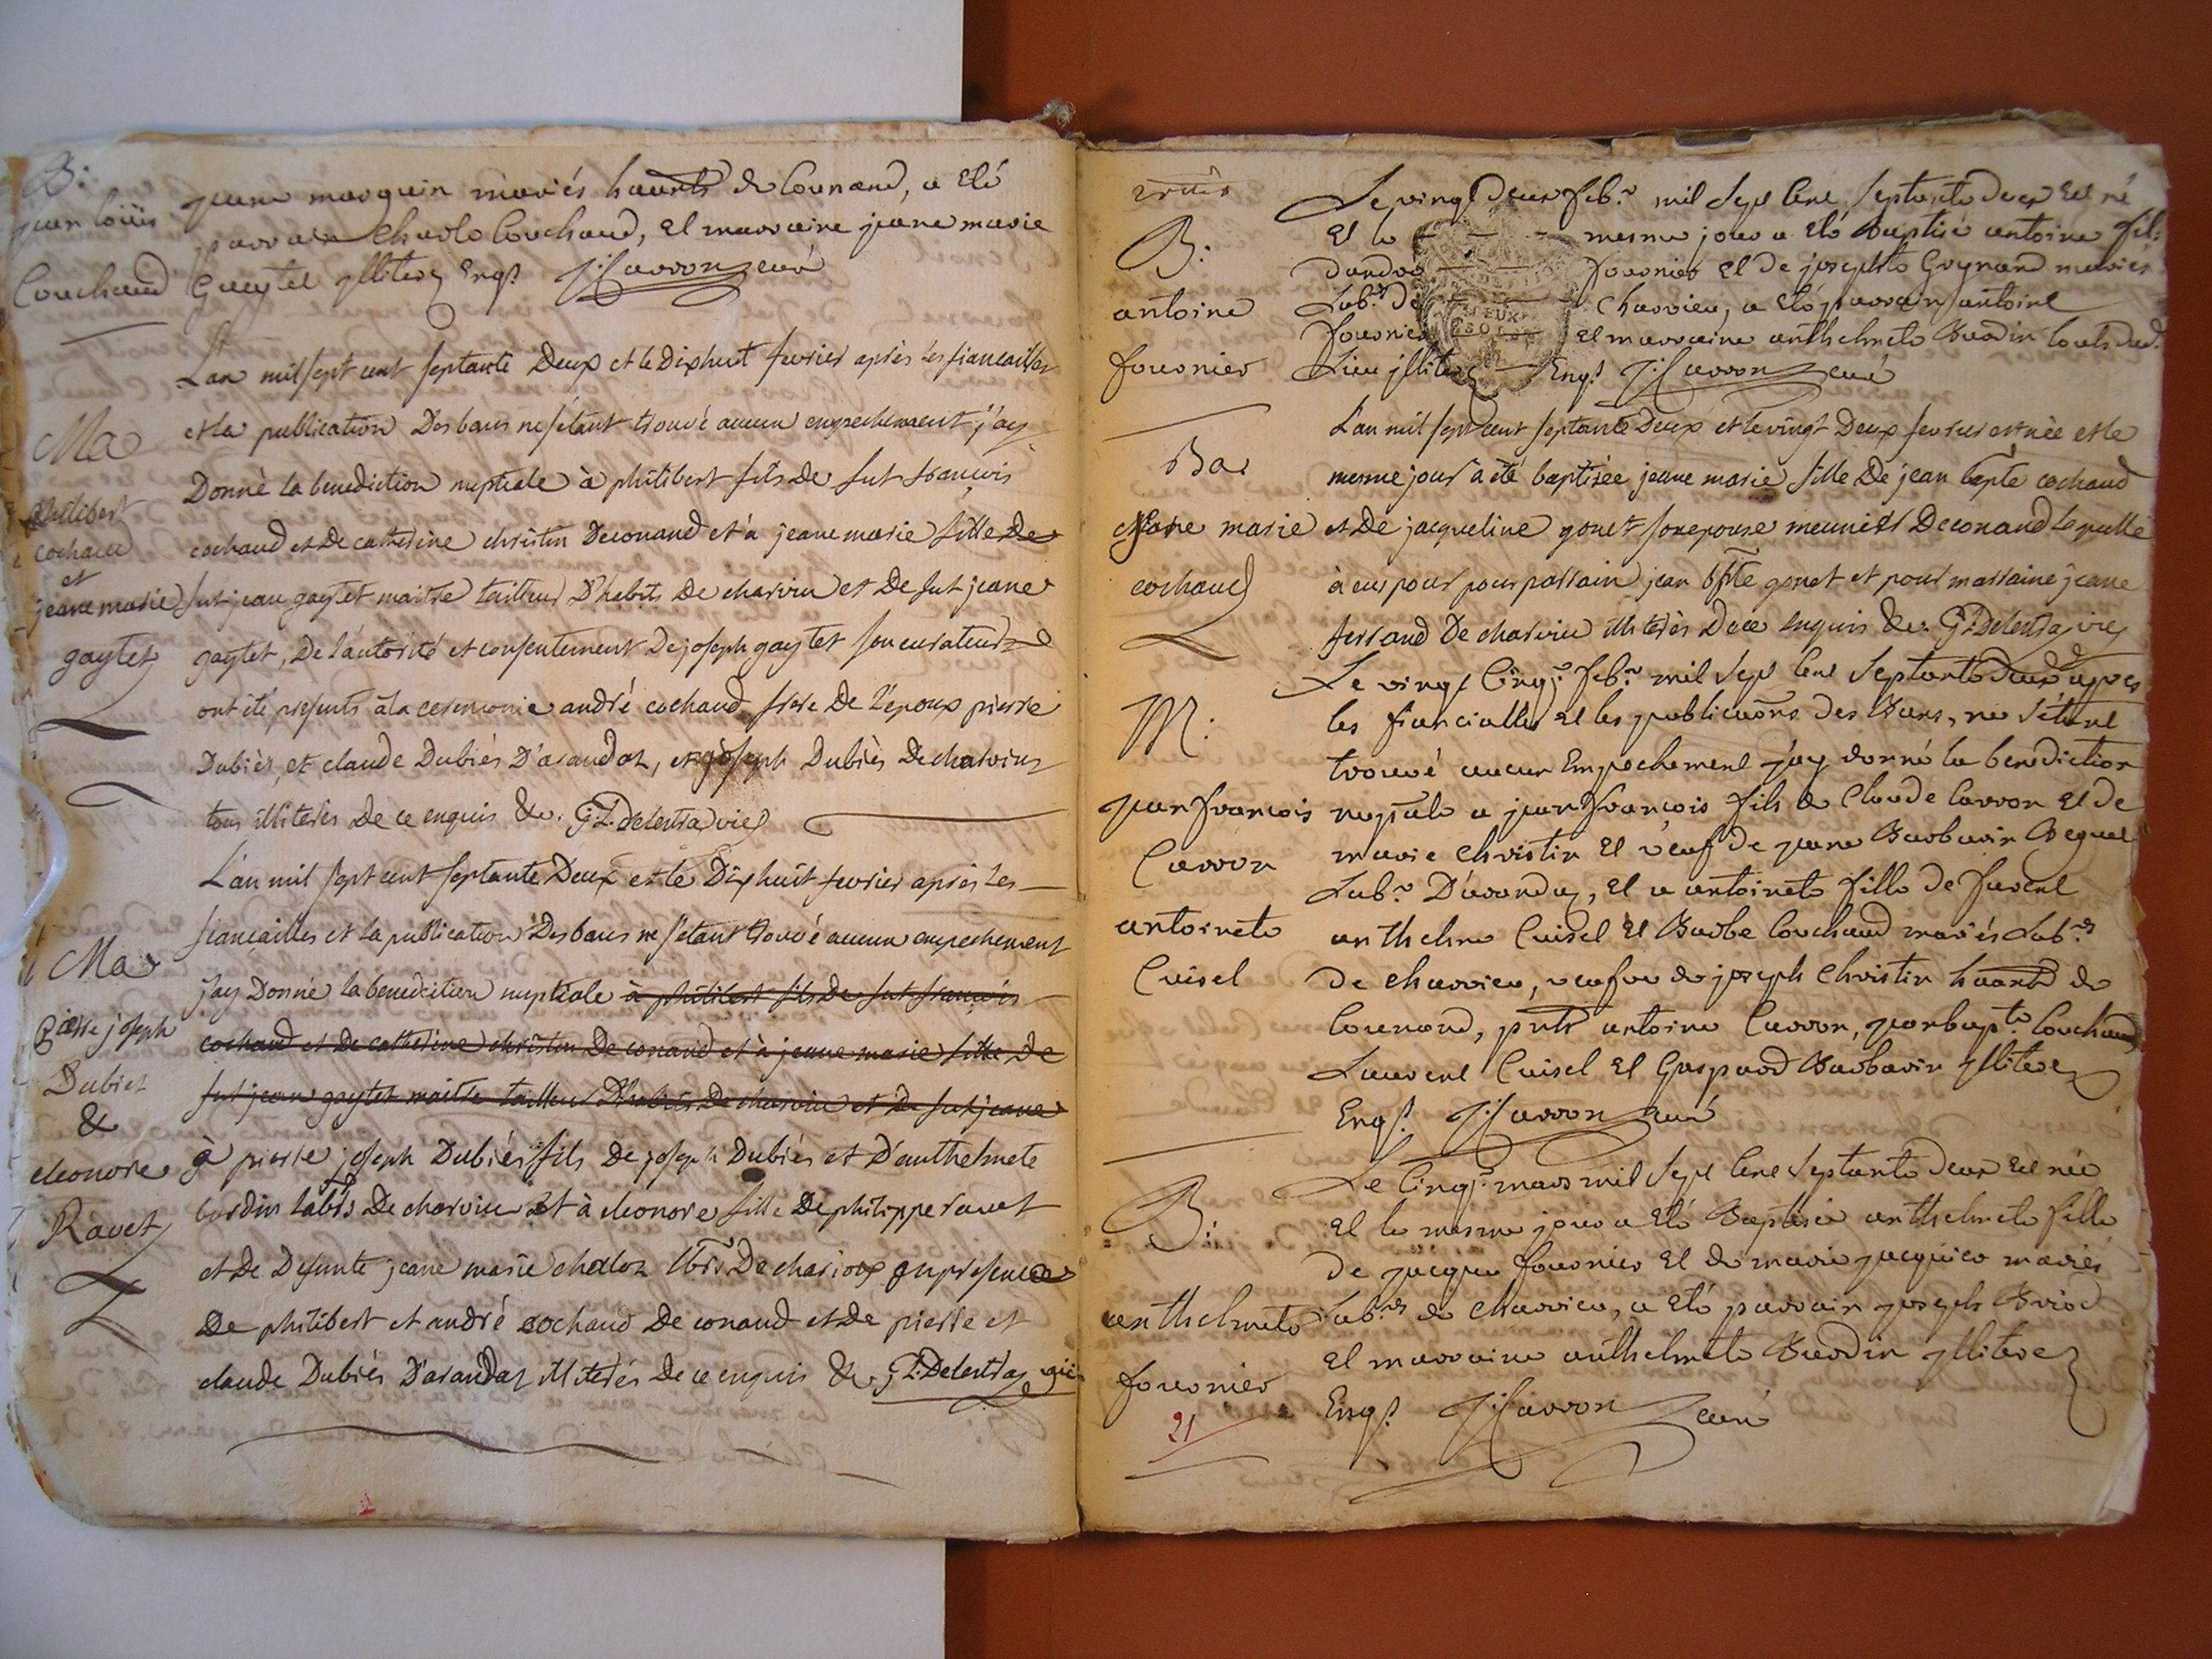 B:
jean loüis
Couchaud
jeane marquin mariés haants de Counand, a eté
parrain Charle Couchaud, et marraine jeane marie
Gaytet jlliteres Enqs. J: Carron curé
Ma
philibert
cochaud
et
jeane marie
gaytet
L'an mil sept cent septante Deux et le Dixhuit fevrier après les fiancailles
et la publication Des bans ne s'étant trouvé aucun empechement j'ay
Donnè la benediction nuptiale à philibert fils De fut francois
cochaud et De catherine christin De conand et à jeane marie fille De
fut jean gaytet maitre tailleur D'habits De charvieu et De fut jeane
gaytet, De l'autôrité et consentement De joseph gaytet son curateur
ont ête presents à la ceremonie andré cochaud frere De l'epoux pierre
Dubièz, et claude Dubiés D'arandaz, et joseph Dubiès De charvieux
tous illiterés De ce enquis &c. G.L. Delentra vic
Mar
Pierre joseph
Dubiez
&
eleonore
Ravet
L'an mil sept cent septante Deux et le Dixhuit fevrier après les
fiançailles et la publication Des bans ne s'etant trouvé aucun empechement
j'ay Donné la benediction nuptiale à philibert fils De fut françois
cochaud et De catherine christin De conand et à jeane marie fille De
fut jean gaytet maitre tailleur D'habits De charvieu et De fut jeane
à pierre joseph Dubiés fils De joseph Dubiés et D'anthelmete
burdin labrs De charvieu et à eleonore fille De philippe ravet
et De Defunte jeane marie chaloz lbrs De charvieux en presence
De philibert et andré cochaud De conand et De pierre et
claude Dubiés D'arandaz illiterés De ce enquis &c. G.L. Delentra vic
B:
antoine
fournier
Le vingt deux febr. mil sept cent septante deux est né
Et le mesme jour a eté Baptisé antoine fils
dandré fournier et de josephte Goynard mariés
Labrs. de Charvieu, a eté parrain antoine
fournier et marraine anthelmete Burdin touts dud.
Lieu jlliteres Enqs. J: Carron curé
Ba
jeane marie
cochaud
L'an mil sept cent septante Deux et le vingt Deux fevrier est nèe et le
mesme jour a été baptizée jeane marie fille De jean bapte cochaud
et De jacqueline gonet son epouse meuniers De conand laquelle
à eus pour pour parrain jean bpte gonet et pour marraine jeane
ferrand De charvieu illiterès De ce enquis &c. G.L. Delentra vic
M:
jean françois
Carron
antoinete
Cuisel
Le vingt Cinq: febr. mil sept Cent septante deux apres
les fiancialles et les publications des Bans, ne s'étant
trouvé aucun Empechement j'ay donné la benediction
nuptale a jean françois fils de Claude Carron et de
marie Christin et veuf de jeane Barbarin
Labr. D'arandaz, et a antoinete fille de fuvent
anthelme Cuisel et Barbe Couchaud mariés Labrs
de Charvieu, veufve de joseph Christin haante de
Counand, pnts antoine Carron, jean bapte. Couchaud
Laurent Cuisel et Gaspard Barbarin jlliteres
Enqs. J: Carron curé
B:
anthelmete
fournier
21
Le Cinq: mars mil sept Cent septante deux est née
Et le mesme jour a eté Baptisée anthelmete fille
de jacque fournier et de marie mariés
Labrs de Charvieu, a eté parrain joseph Briod
et marraine anthelmete Burdin jlliteres
Enqs. J: Carron curé